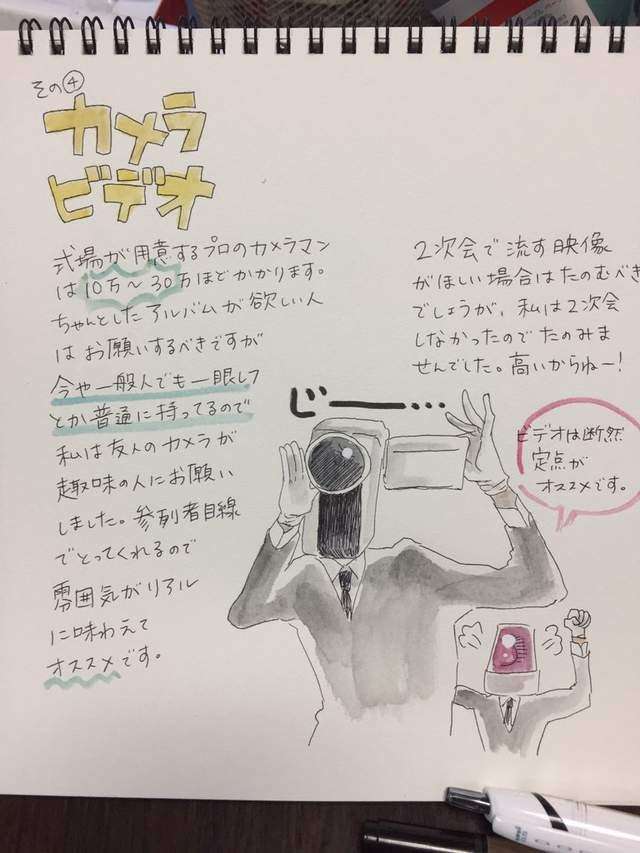 その④
カメラ
ビデオ
式場が用意するプロのカメラマン
は10万〜30万ほどかかります。
ちゃんとしたアルバムが欲しい人
はお願いするべきですが
今や一般人でも一眼レフ
とか普通に持ってるので
私は友人のカメラが
趣味の人にお願い
しました。参列者目線
でとってくれるので
雰囲気がリアル
に味わえて
オススメです。
2次会で流す映像
がほしい場合はたのむべき
でしょうが、私は2次会
しなかったのでたのみま
せんでした。高いからねー!
じーー…
ビデオは断然
定点が
オススメです。